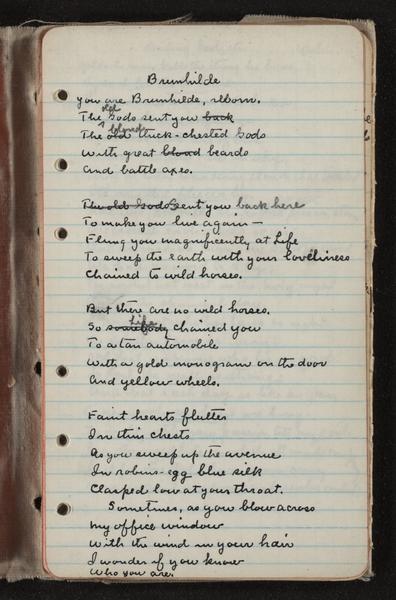 Brunhilde
you are Brunhilde, reborn.
The old Gods sent you back
The old blond thick-chested Gods
With great blond beards
And battle axes.
The old Gods sent you back here
To make you live again —
Flung you magnificently at Life
To sweep the earth with your loveliness
Chained to wild horses.
But there are no wild horses.
So somebody Life chained you
To a tan automobile
With a gold monogram on the door
And yellow wheels.
Faint hearts flutter
In thin chests
As you sweep up the avenue
In robins-egg blue silk
Clasped low at your throat.
Sometimes, as you blow across
my office window
With the wind in your hair
I wonder if you know
Who you are.